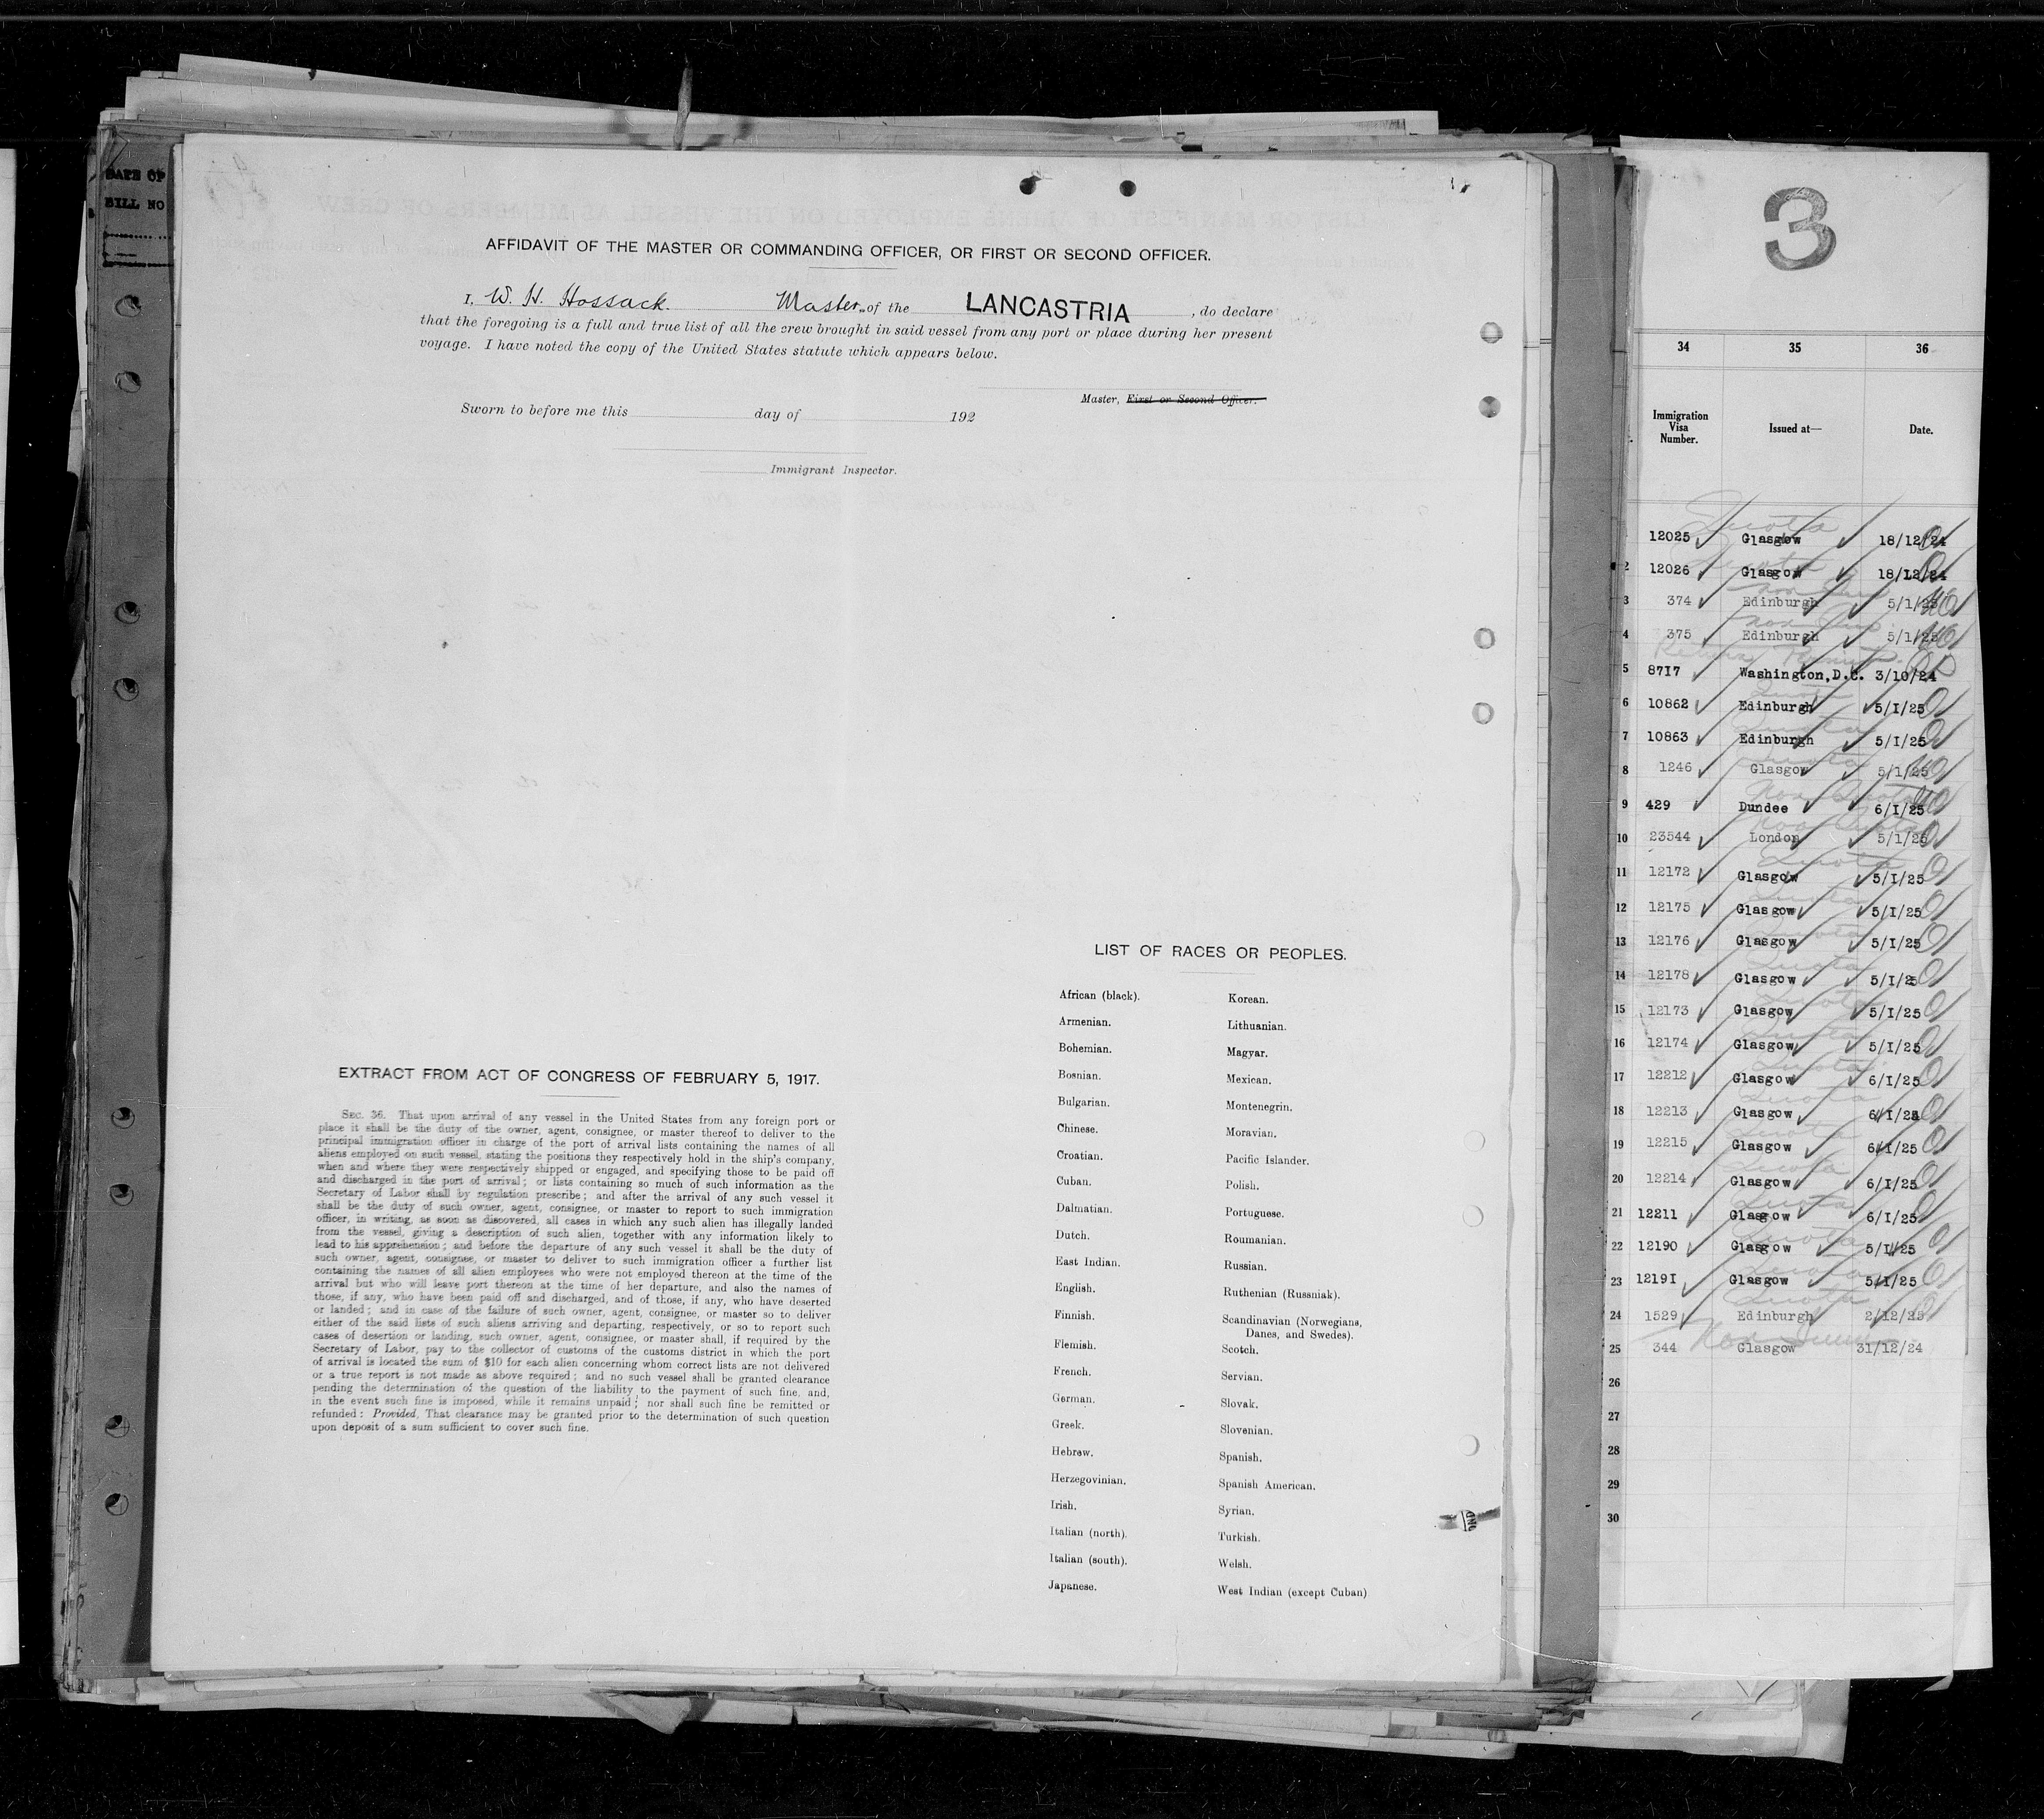 DATE OF
BILL NO
AFFIDAVIT OF THE MASTER OR COMMANDING OFFICER, OR FIRST OR SECOND OFFICER.
I, W. H. Hossack. Master of the LANCASTRIA, do declare
that the foregoing is a full and true list of all the crew brought in said vessel from any port or place during her present
voyage. I have noted the copy of the United States statute which appears below.
Master, First or Second Officer.
Sworn to before me this day of 192
Immigrant Inspector.
LIST OF RACES OR PEOPLES.
African (black). Korean.
Armenian. Lithuanian.
Bohemian. Magyar.
Bosnian. Mexican.
Bulgarian. Montenegrin.
Chinese. Moravian.
Croatian. Pacific Islander.
Cuban. Polish.
Dalmatian. Portuguese.
Dutch. Roumanian.
East Indian. Russian.
English. Ruthenian (Russniak).
Finnish. Scandinavian (Norwegians,
Danes, and Swedes).
Flemish. Scotch.
French. Servian.
German. Slovak.
Greek. Slovenian.
Hebrew. Spanish.
Herzegovinian. Spanish American.
Irish. Syrian.
Italian (north). Turkish.
Italian (south). Welsh.
Japanese. West Indian (except Cuban)
EXTRACT FROM ACT OF CONGRESS OF FEBRUARY 5, 1917.
SEC. 36. That upon arrival of any vessel in the United States from any foreign port or
place it shall be the duty of the owner, agent, consignee, or master thereof to deliver to the
principal immigration officer in charge of the port of arrival lists containing the names of all
aliens employed on such vessel, stating the positions they respectively hold in the ship's company,
when and where they were respectively shipped or engaged, and specifying those to be paid off
and discharged in the port of arrival; or lists containing so much of such information as the
Secretary of Labor shall by regulation prescribe; and after the arrival of any such vessel it
shall be the duty of such owner, agent, consignee, or master to report to such immigration
officer, in writing, as soon as discovered, all cases in which any such alien has illegally landed
from the vessel, giving a description of such alien, together with any information likely to
lead to his apprehension; and before the departure of any such vessel it shall be the duty of
such owner, agent, consignee, or master to deliver to such immigration officer a further list
containing the names of all alien employees who were not employed thereon at the time of the
arrival but who will leave port thereon at the time of her departure, and also the names of
those, if any, who have been paid off and discharged, and of those, if any, who have deserted
or landed; and in case of the failure of such owner, agent, consignee, or master so to deliver
either of the said lists of such aliens arriving and departing, respectively, or so to report such
cases of desertion or landing, such owner, agent, consignee, or master shall, if required by the
Secretary of Labor, pay to the collector of customs of the customs district in which the port
of arrival is located the sum of $10 for each alien concerning whom correct lists are not delivered
or a true report is not made as above required; and no such vessel shall be granted clearance
pending the determination of the question of the liability to the payment of such fine, and,
in the event such fine is imposed, while it remains unpaid; nor shall such fine be remitted or
refunded: Provided, That clearance may be granted prior to the determination of such question
upon deposit of a sum sufficient to cover such fine.
3
34 35 36
Immigration Visa Number. Issued at— Date.
12025 Glasgow 18/12/24 Quota
2 12026 Glasgow 18/12/24 Quota
3 374 Edinburgh 5/1/25
4 375 Edinburgh 5/1/25
5 8717 Washington, D.C. 3/10/24 Return Permit
6 10862 Edinburgh 5/I/25 Quota
7 10863 Edinburgh 5/I/25 Quota
8 1246 Glasgow 5/1/25 Quota
9 429 Dundee 6/I/25 Non Quota
10 23544 London 5/1/25 Non Quota
11 12172 Glasgow 5/I/25 Quota
12 12175 Glasgow 5/I/25 Quota
13 12176 Glasgow 5/I/25 Quota
14 12178 Glasgow 5/I/25 Quota
15 12173 Glasgow 5/I/25 Quota
16 12174 Glasgow 5/I/25 Quota
17 12212 Glasgow 6/I/25 Quota
18 12213 Glasgow 6/I/25 Quota
19 12215 Glasgow 6/I/25 Quota
20 12214 Glasgow 6/I/25 Quota
21 12211 Glasgow 6/I/25 Quota
22 12190 Glasgow 5/I/25 Quota
23 1219I Glasgow 5/I/25 Quota
24 1529 Edinburgh 2/12/25 Quota
25 344 Glasgow 31/12/24 Non
26
27
28
29
30